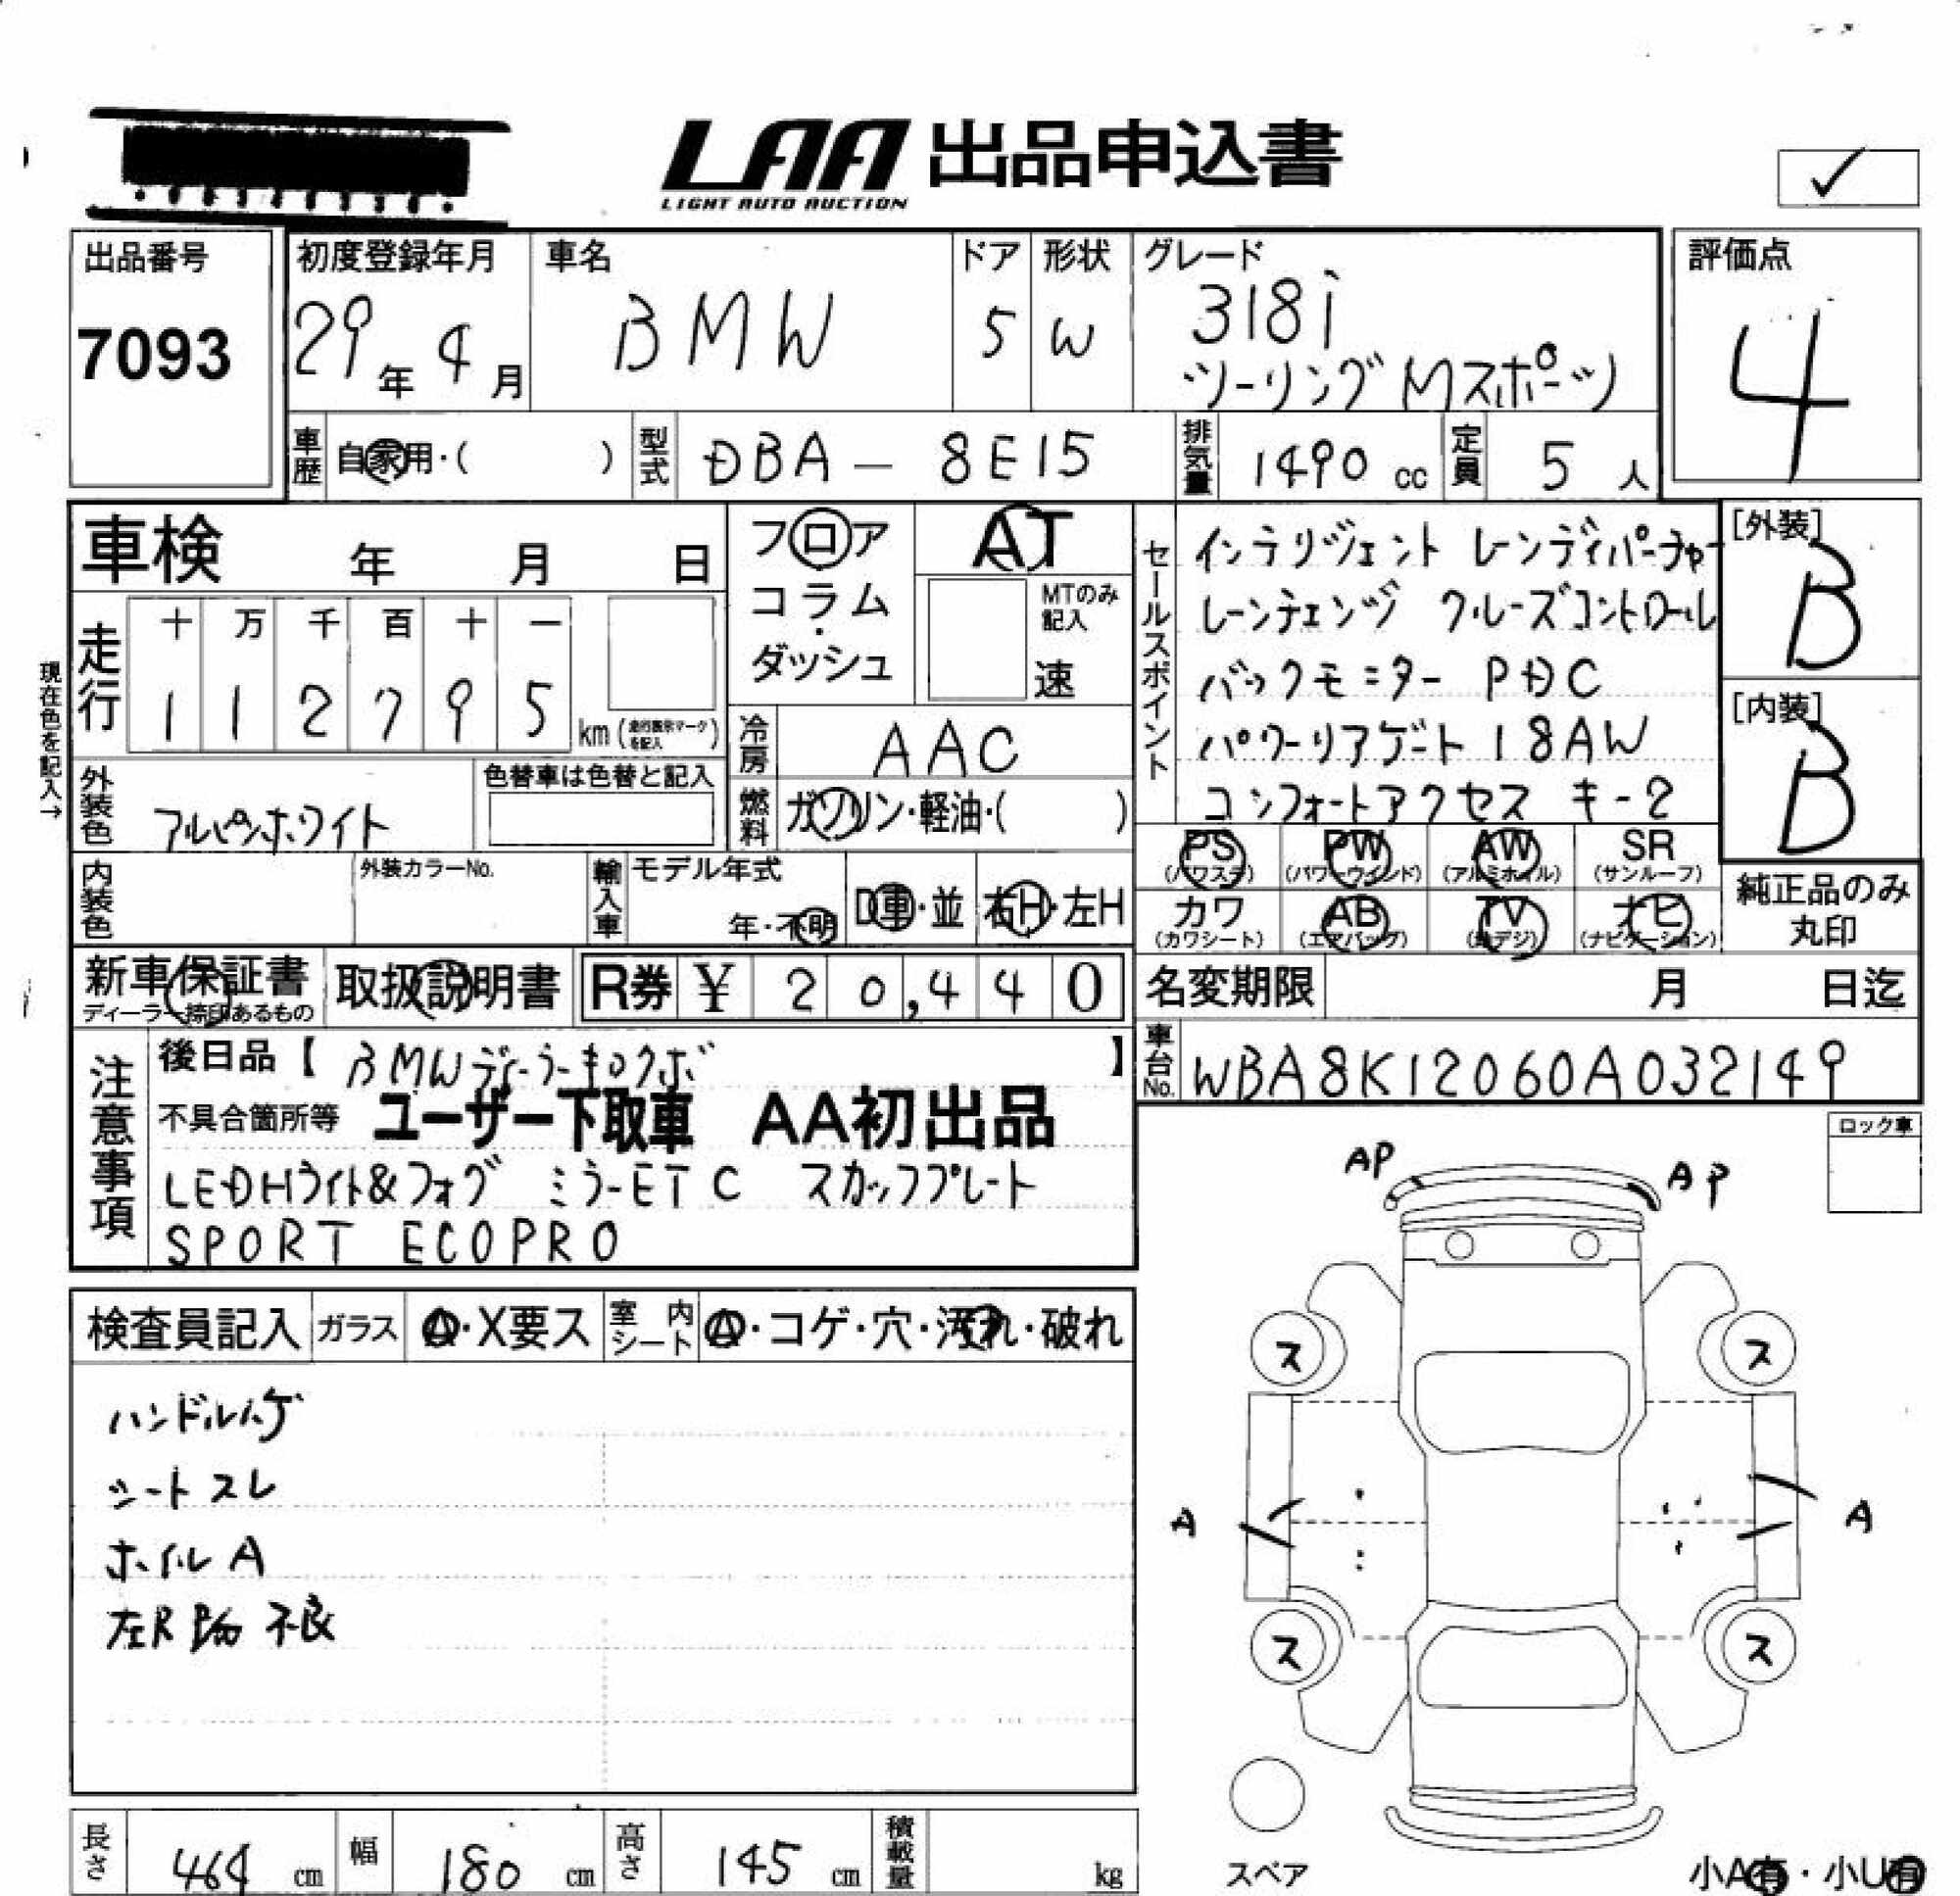 LAA 出品申込書
LIGHT AUTO AUCTION
✓
出品番号
7093
初度登録年月
29年 4月
車名
BMW
ドア
5
形状
W
グレード
318i
ツーリングMスポーツ
評価点
4
車歴
自家用・( )
型式
DBA - 8E15
排気量
1490 cc
定員
5 人
車検 年 月 日
フロア
コラム
・
ダッシュ
AT
MTのみ
記入
速
走行
十 万 千 百 十 一
1 1 2 7 9 5
km (走行表示マークを記入)
現在色を記入→
外装色
アルピンホワイト
色替車は色替と記入
冷房
AAC
燃料
ガソリン・軽油・( )
内装色
外装カラーNo.
輸入車
モデル年式
年・不明
D車・並
右H・左H
セールスポイント
インテリジェント レーンディパーチャー
レーンチェンジ クルーズコントロール
バックモニター PDC
パワーリアゲート 18AW
コンフォートアクセス キー2
[外装]
B
[内装]
B
PS
(パワステ)
PW
(パワーウインド)
AW
(アルミホイル)
SR
(サンルーフ)
カワ
(カワシート)
AB
(エアバッグ)
TV
(地デジ)
ナビ
(ナビゲーション)
純正品のみ
丸印
新車保証書
ディーラー捺印あるもの
取扱説明書
R券 ¥ 20,440
名変期限 月 日迄
車台No.
WBA8K12060A032149
注意事項
後日品【 BMWディーラーキロクボ 】
不具合箇所等 ユーザー下取車 AA初出品
LEDHライト&フォグ ミラーETC スカッフプレート
SPORT ECOPRO
ロック車
AP
AP
検査員記入
ガラス
A・X要ス
室内
シート
A・コゲ・穴・汚れ・破れ
ハンドルハゲ
シートスレ
ホイルA
左R 不良
ス
ス
A
A
ス
ス
スペア
長さ 464 cm
幅 180 cm
高さ 145 cm
積載量 kg
小A有・小U有